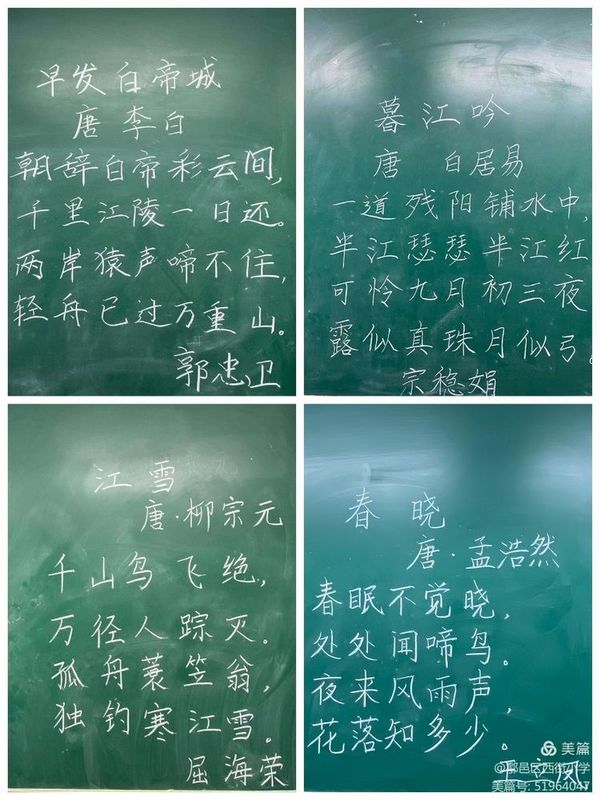 早发白帝城
唐 李白
朝辞白帝彩云间,
千里江陵一日还。
两岸猿声啼不住,
轻舟已过万重山。
郭忠卫
暮江吟
唐 白居易
一道残阳铺水中,
半江瑟瑟半江红
可怜九月初三夜
露似真珠月似弓。
宗稳娟
江雪
唐·柳宗元
千山鸟飞绝,
万径人踪灭。
孤舟蓑笠翁,
独钓寒江雪。
屈海荣
春晓
唐·孟浩然
春眠不觉晓,
处处闻啼鸟。
夜来风雨声,
花落知多少。
美篇
美篇号: 51964047